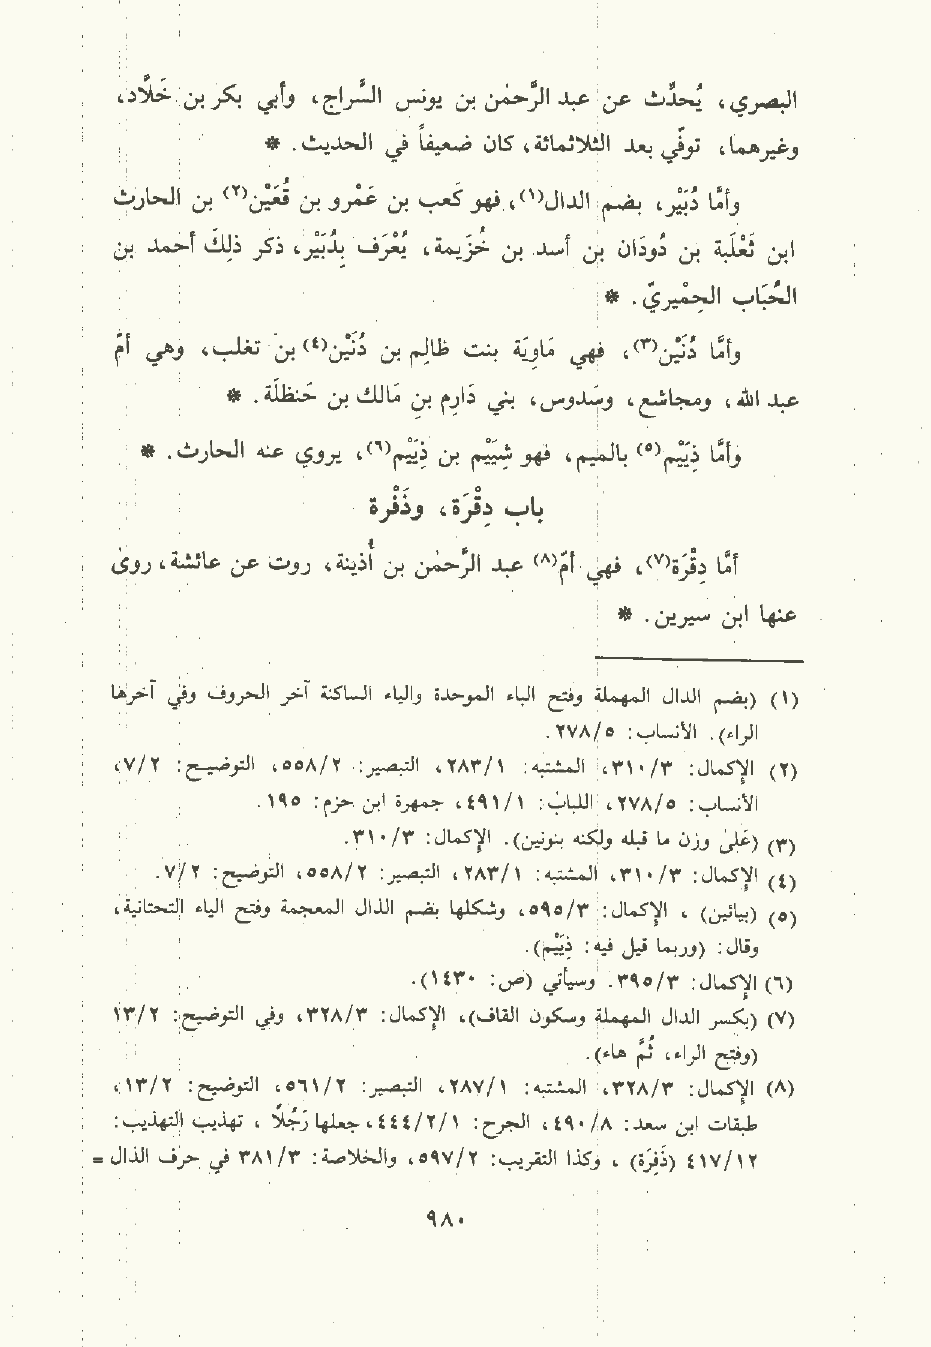 البصري، يُحدِّث عن عبد الرَّحمٰن بن يونس السَّراج، وأبي بكر بن خَلَّاد،
وغيرهما، توفّي بعد الثلاثمائة، كان ضعيفاً في الحديث. *
وأمَّا دُبَيْر، بضم الدال(١)، فهو كَعب بن عَمْرو بن قُعَيْن(٢) بن الحارث
ابن ثَعْلَبة بن دُودَان بن أسد بن خُزَيمة، يُعْرَف بِدُبَيْر، ذكر ذلِكَ أحمد بن
الحُبَاب الحِمْيريّ. *
وأمَّا دُنَيْن(٣)، فهي مَاوِيَة بنت ظالِم بن دُنَيْن(٤) بن تغلب، وهي أمّ
عبد الله، ومجاشع، وسَدوس، بني دَارِم بن مَالك بن حَنظَلَة. *
وأمَّا ذِيَيْم(٥) بالميم، فهو شِيَيْم بن ذِيَيْم(٦)، يروي عنه الحارث. *
باب دِقْرَة، وذَفْرة
أمَّا دِقْرَة(٧)، فهي أمّ(٨) عبد الرَّحمٰن بن أُذينة، روت عن عائشة، روىٰ
عنها ابن سيرين. *
(١) (بضم الدال المهملة وفتح الباء الموحدة والياء الساكنة آخر الحروف وفي آخرها
الراء). الأنساب: ٢٧٨/٥.
(٢) الإكمال: ٣١٠/٣، المشتبه: ٢٨٣/١، التبصير: ٥٥٨/٢، التوضيح: ٧/٢،
الأنساب: ٢٧٨/٥، اللباب: ٤٩١/١، جمهرة ابن حزم: ١٩٥.
(٣) (علىٰ وزن ما قبله ولكنه بنونين). الإكمال: ٣١٠/٣.
(٤) الإكمال: ٣١٠/٣، المشتبه: ٢٨٣/١، التبصير: ٥٥٨/٢، التوضيح: ٧/٢.
(٥) (بيائين) ، الإكمال: ٥٩٥/٣، وشكلها بضم الذال المعجمة وفتح الياء التحتانية،
وقال: (وربما قيل فيه: ذِيَيْم).
(٦) الإكمال: ٣٩٥/٣. وسيأتي (ص: ١٤٣٠).
(٧) (بكسر الدال المهملة وسكون القاف)، الإكمال: ٣٢٨/٣، وفي التوضيح: ١٣/٢
(وفتح الراء، ثُمَّ هاء).
(٨) الإكمال: ٣٢٨/٣، المشتبه: ٢٨٧/١، التبصير: ٥٦١/٢، التوضيح: ١٣/٢،
طبقات ابن سعد: ٤٩٠/٨، الجرح: ٤٤٤/٢/١، جعلها رَجُلاً ، تهذيب التهذيب:
٤١٧/١٢ (ذَفِرَة) ، وكذا التقريب: ٥٩٧/٢، والخلاصة: ٣٨١/٣ في حرف الذال =
٩٨٠